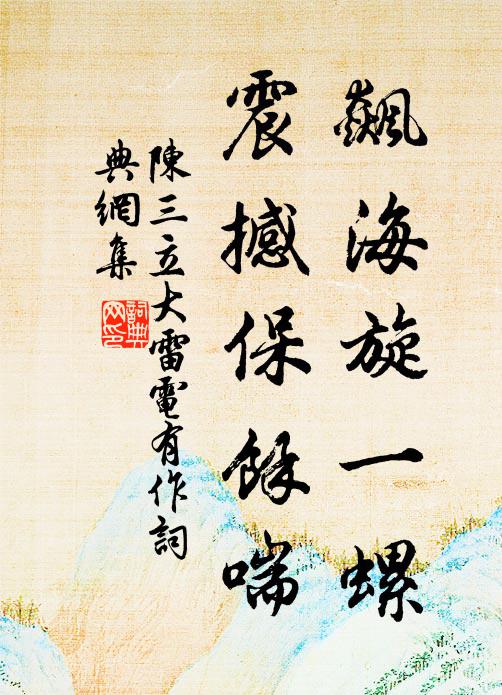 飆海旋一螺
震撼保餘喘
陳三立大雷電有作詞
典網集
詞典網印